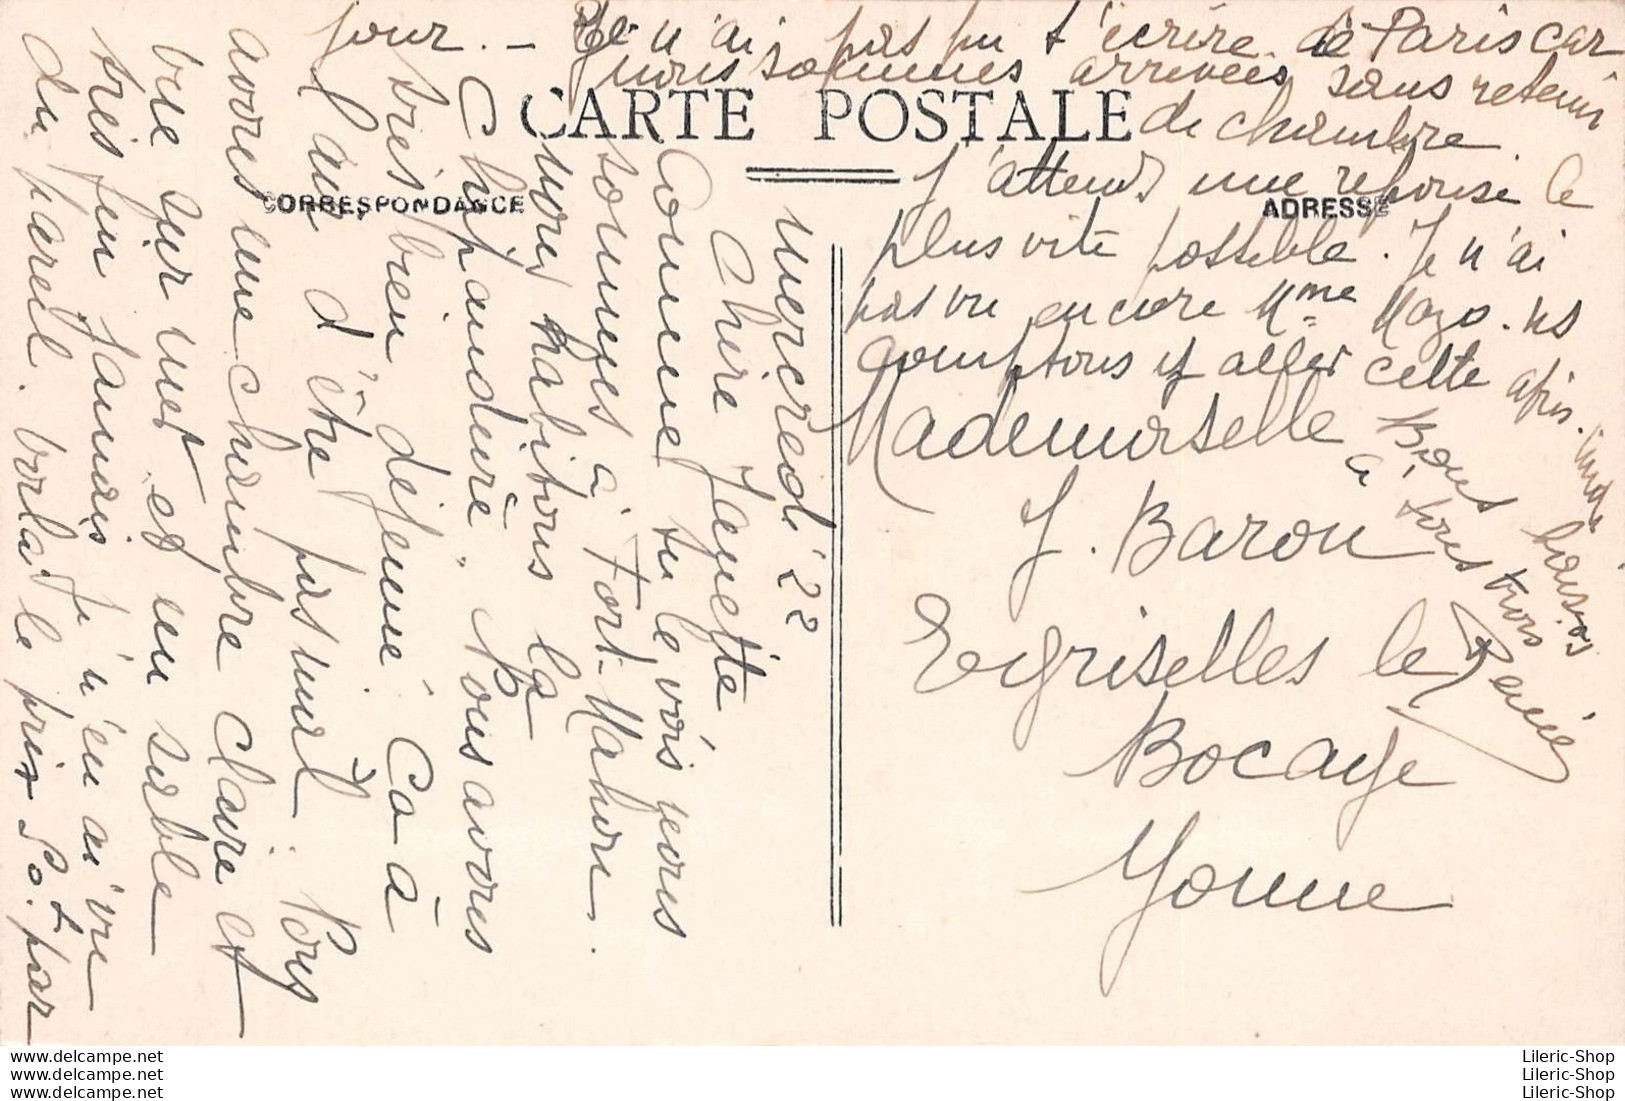 mercredi 22
Chère Janette
Comme tu le vois nous
sommes à Fort-Mahon.
Nous habitons la
Chipaudière. Nous avons
très bien déjeuné. Ca à
l'air d'être pas mal. Nous
avons une chambre claire et
vue sur mer et un sable
très fin jamais je n'en ai vu
du pareil. Voilà le prix 50f par
jour. - Je n'ai pas pu t'écrire de Paris car
nous sommes arrivées sans retenir
de chambre.
CARTE POSTALE
CORRESPONDANCE
ADRESSE
J'attends une réponse le
plus vite possible. Je n'ai
pas vu encore Mme Mazo. ns
comptons y aller cette après.
Bons baisers
à tous trois
Renée
Mademoiselle
J. Baron
Egriselles le
Bocage
Yonne
www.delcampe.net
www.delcampe.net
www.delcampe.net
Lileric-Shop
Lileric-Shop
Lileric-Shop